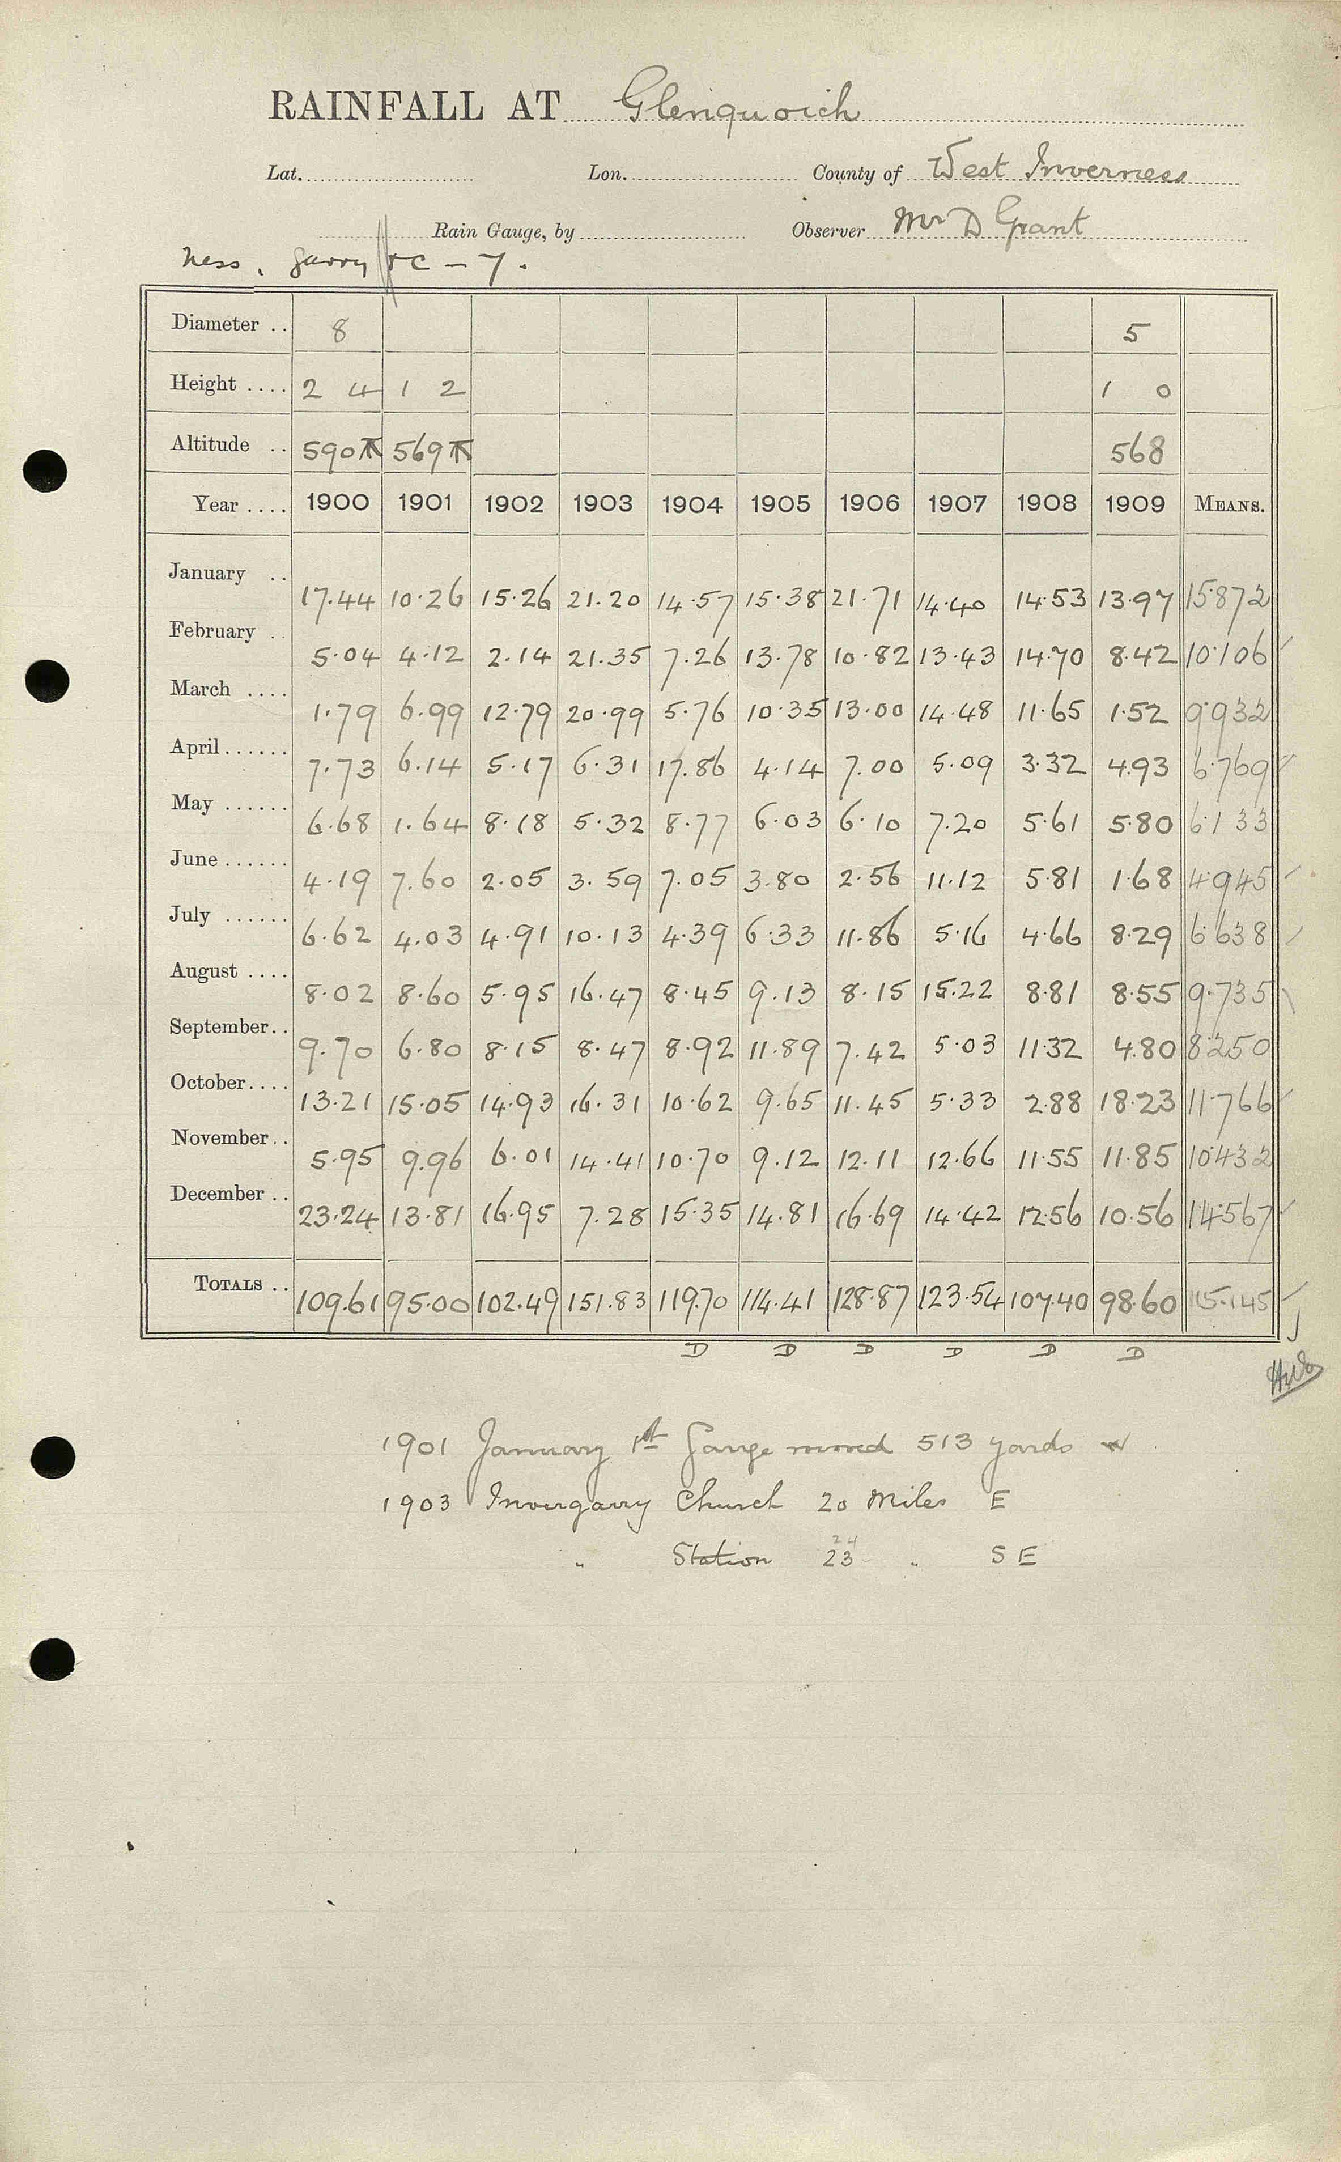 RAINFALL AT Glenquoich
Lat. Lon. County of West Inverness
Rain Gauge, by Observer Mr D Grant
Ness, Garry
Diameter .. 8 5
Height .... 2 4 1 2 1 0
Altitude .. 590 569 568
Year .... 1900 1901 1902 1903 1904 1905 1906 1907 1908 1909 MEANS.
January .. 17.44 10.26 15.26 21.20 14.57 15.38 21.71 14.40 14.53 13.97 15.872
February .. 5.04 4.12 2.14 21.35 7.26 13.78 10.82 13.43 14.70 8.42 10.106
March .... 1.79 6.99 12.79 20.99 5.76 10.35 13.00 14.48 11.65 1.52 9.932
April ...... 7.73 6.14 5.17 6.31 17.86 4.14 7.00 5.09 3.32 4.93 6.769
May ...... 6.68 1.64 8.18 5.32 8.77 6.03 6.10 7.20 5.61 5.80 6.133
June ...... 4.19 7.60 2.05 3.59 7.05 3.80 2.56 11.12 5.81 1.68 4.945
July ...... 6.62 4.03 4.91 10.13 4.39 6.33 11.86 5.16 4.66 8.29 6.638
August .... 8.02 8.60 5.95 16.47 8.45 9.13 8.15 15.22 8.81 8.55 9.735
September .. 9.70 6.80 8.15 8.47 8.92 11.89 7.42 5.03 11.32 4.80 8.250
October .... 13.21 15.05 14.93 16.31 10.62 9.65 11.45 5.33 2.88 18.23 11.766
November .. 5.95 9.96 6.01 14.41 10.70 9.12 12.11 12.66 11.55 11.85 10.432
December .. 23.24 13.81 16.95 7.28 15.35 14.81 16.69 14.42 12.56 10.56 14.567
TOTALS .. 109.61 95.00 102.49 151.83 119.70 114.41 128.87 123.54 107.40 98.60 115.145
D D D D D D
1901 January 1st Gauge moved 513 yards W
1903 Invergarry Church 20 Miles E
" Station 23 24 " S E